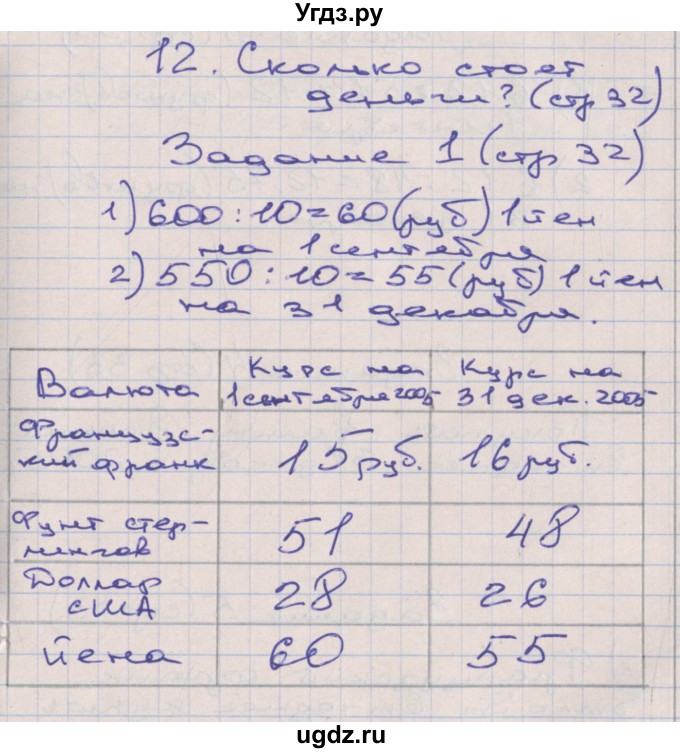 Угдз.ру
12. Сколько стоят
деньги? (стр 32)
Задание 1 (стр 32)
1) 600 : 10 = 60 (руб) 1 йен
на 1 сентября
2) 550 : 10 = 55 (руб) 1 йен
на 31 декабря.
Валюта
Курс на
1 сентября 2005
Курс на
31 дек. 2005
Французс-
кий франк
15 руб.
16 руб.
Фунт стер-
лингов
51
48
Доллар
США
28
26
йена
60
55
ugdz.ru